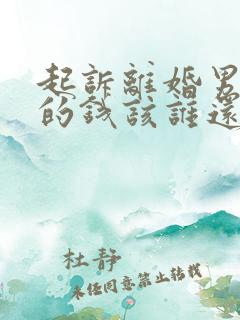 起訴離婚男
的錢該誰還
杜静
未任同意禁止转载